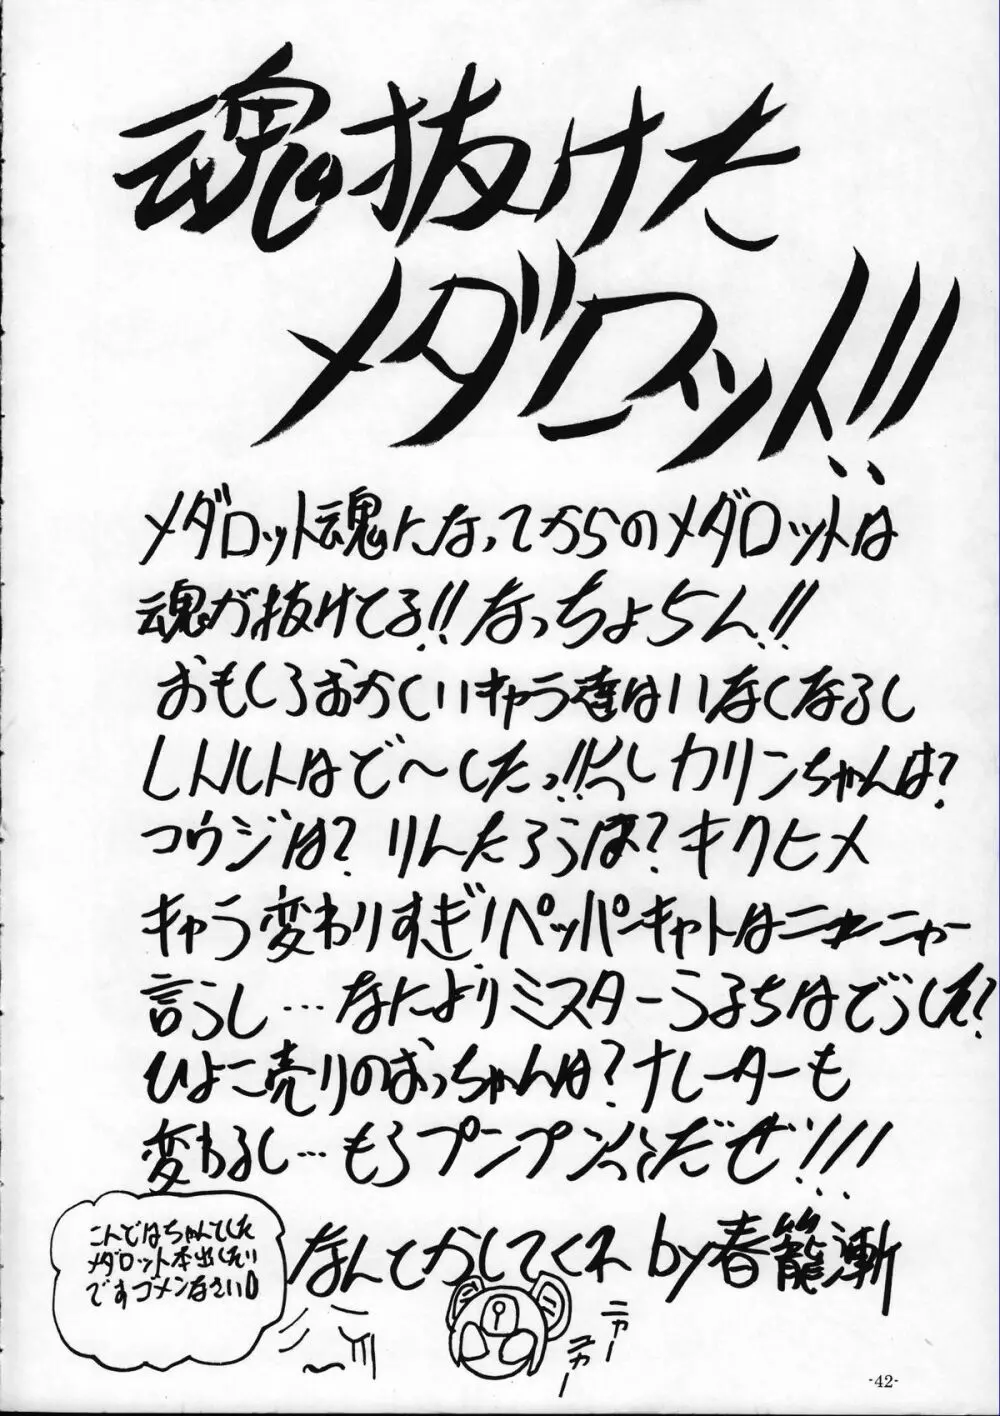 魂抜けた
メダロット!!
メダロット魂になってからのメダロットは
魂が抜けてる!!なっちょらん!!
おもしろおかしいキャラ達はいなくなるし
シトルトはど〜したっ!!くしカリンちゃんは?
コウジは?りんたろうは?キクヒメ
キャラ変わりすぎ!ペッパーキャットはニャーニャー
言うし…なによりミスターうるちはどうした?
ひよこ売りのおっちゃんは?ナレーターも
変わるし…もうプンプンだぜ!!!
なんとかしてくれ by春籠漸
こんどはちゃんとした
メダロット本出したい
ですゴメンなさい
ニャー
ニャー
-42-